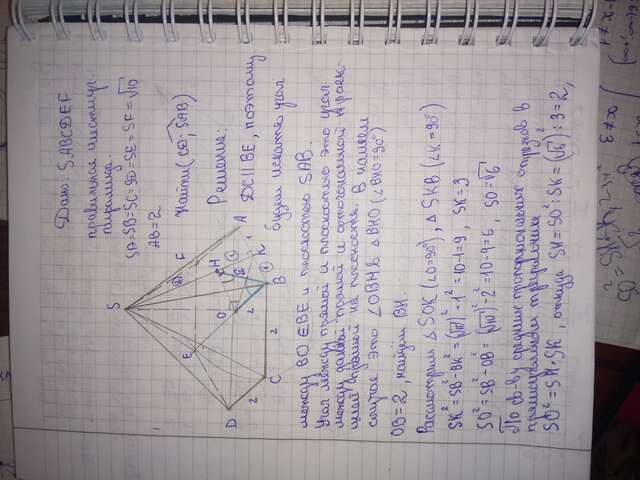 Дано: SABCDEF
правильная шестиуг.
пирамида.
SA=SB=SC=SD=SE=SF=√10
AB=2
Найти: (CD; SAB)
Решение:
DC || BE, поэтому
будем искать угол
между BO ∈ BE и плоскостью SAB.
Угол между прямой и плоскостью это угол
между данной прямой и ортогональной проек-
цией прямой на плоскость. В нашем
случае это ∠OBH в △BHO (∠BHO=90°)
OB=2, найдем BH.
Рассмотрим △SOK (∠O=90°), △SKB (∠K=90°)
SK²=SB²-BK²=(√10)²-1²=10-1=9, SK=3
SO²=SB²-OB²=(√10)²-2²=10-4=6, SO=√6
По об-ву средних пропорциональных отрезков в
прямоугольном треугольнике
SO²=SH·SK, откуда SH=SO²:SK=(√6)²:3=2,
S
F
A
E
O
H
K
B
D
C
2
2
2
1
1